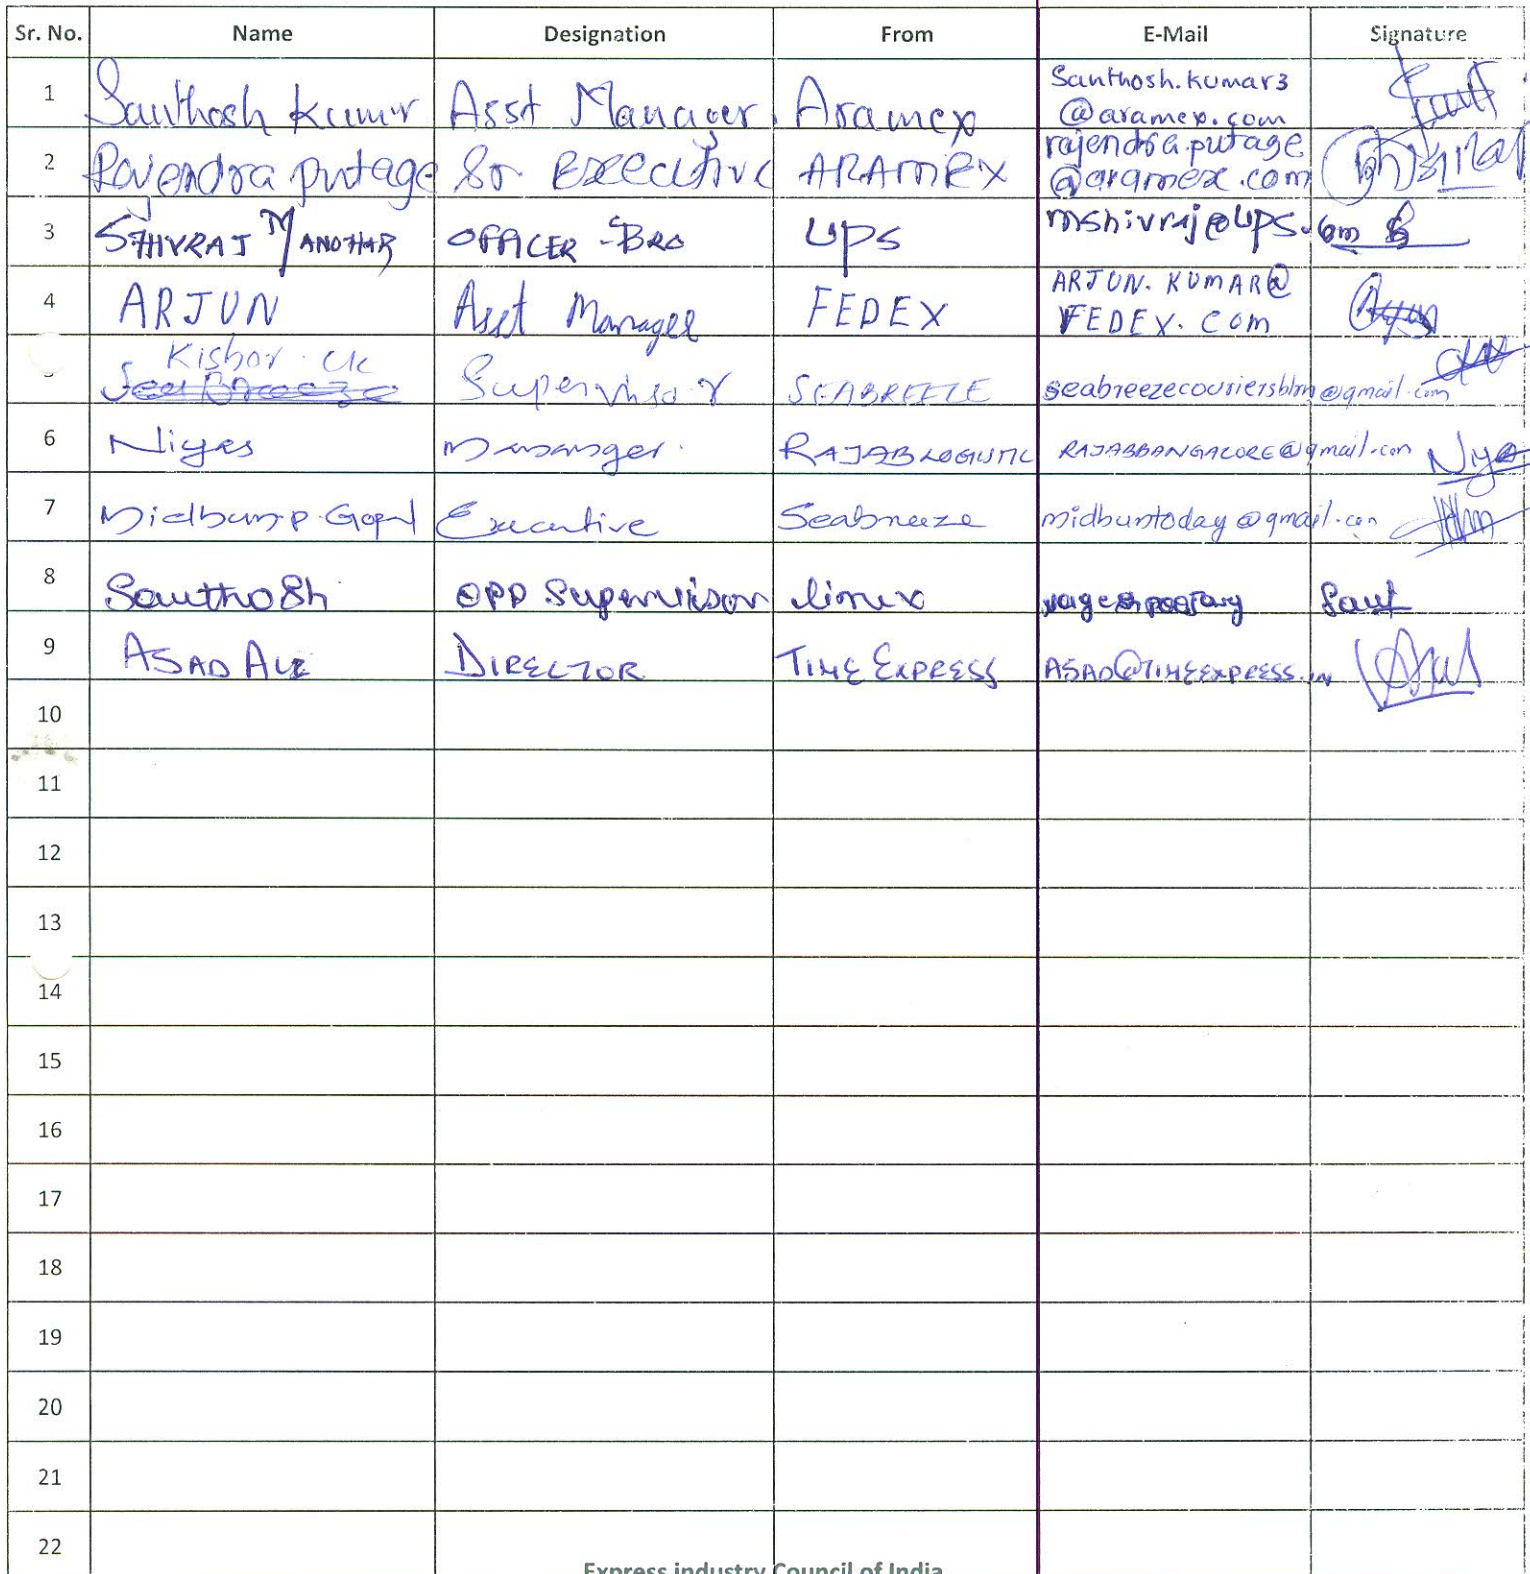 Sr. No. Name Designation From E-Mail Signature
1 Santhosh Kumar Asst Manager Aramex Santhosh.kumar3
@aramex.com
2 Rajendra putage Sr Executive ARAMEX rajendra.putage
@aramex.com
3 SHIVRAJ MANOHAR OFFICER - BRO UPS mshivraj@ups.com
4 ARJUN Asst Manager FEDEX ARJUN.KUMAR@
FEDEX.COM
Kishor
Sea Breeze Supervisor SEABREEZE seabreezecouriersblr@gmail.com
6 Niyas Manager RAJAB LOGISTIC RAJABBANGALORE@gmail.com Niyas
7 Midhun.P.Gopal Executive Seabreeze midhuntoday@gmail.com
8 Santhosh OPP Supervisor Sant
9 ASAD ALI DIRECTOR TIME EXPRESS ASAD@TIMEEXPRESS.IN
10
11
12
13
14
15
16
17
18
19
20
21
22
Express industry Council of India